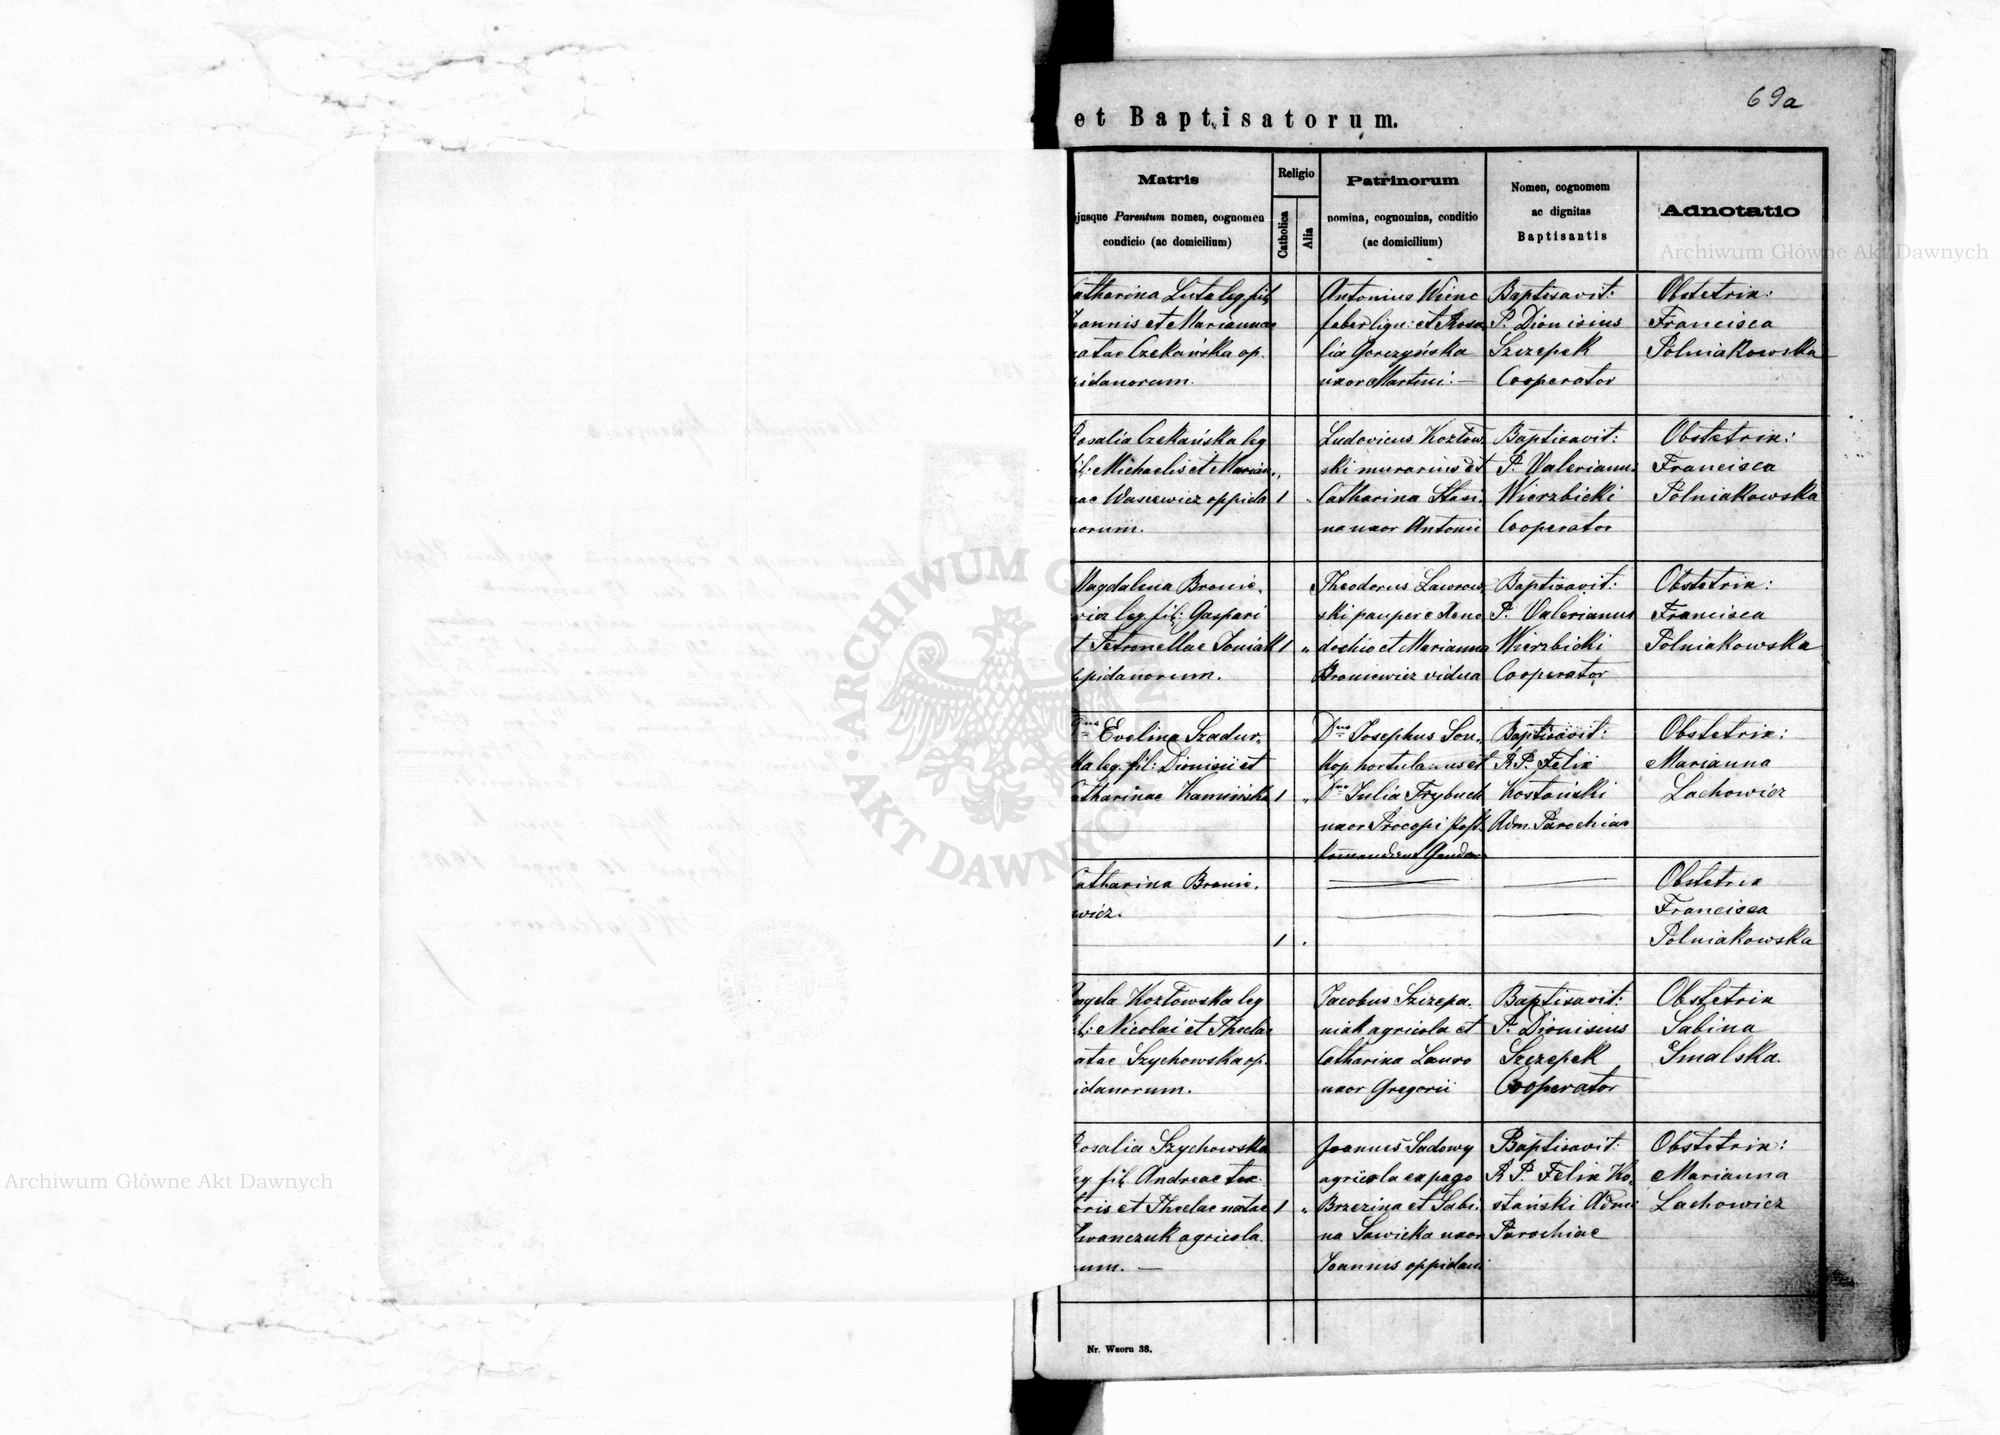 69a
et Baptisatorum.
Matris
ejusque Parentum nomen, cognomen
condicio (ac domicilium)
Religio
Catholica
Alia
Patrinorum
nomina, cognomina, conditio
(ac domicilium)
Nomen, cognomem
ac dignitas
Baptisantis
Adnotatio
Archiwum Główne Akt Dawnych
atharina Luta leg. fil.
Joannis et Mariannae
natae Czekańska op.
pidanorum.
Antonius Wienc
faber lign: et Rosa
lia Gorczyńska
uxor Martini. —
Baptisavit:
P. Dionisius
Szczepek
Cooperator
Obstetrix:
Francisca
Polniakowska
Rosalia Czekańska leg
fil: Michaelis et Marian„
nae Wasiewicz oppida
norum.
1 „
Ludovicus Kozłow„
ski murarius et
Catharina Stasi„
na uxor Antonii
Baptisavit:
P. Valerianus
Wierzbicki
Cooperator
Obstetrix:
Francisca
Polniakowska
Magdalena Bronie„
wicz leg. fil: Gaspari
t Petronellae Joniak
ppidanorum.
1 „
Theodorus Ławrow„
ski pauper e Xeno
dochio et Marianna
Broniewicz vidua
Baptisavit:
P. Valerianus
Wierzbicki
Cooperator
Obstetrix:
Francisca
Polniakowska
Dna Evelina Szadur„
ka leg. fil: Dionisii et
atharinae Kamińska
1 „
Dnus Josephus Son„
kop hortulanus et
Dna Julia Trybuch
uxor Procopi
Baptisavit:
R. P. Felix
Kostański
Adm. Parochiae
Obstetrix:
Marianna
Lachowicz
atharina Bronie„
wicz.
1 „
Obstetrix
Francisca
Polniakowska
Angela Kozłowska leg
fil: Nicolai et Theclae
natae Szychowska op.
pidanorum.
Jacobus Szczepa„
niak agricola et
Catharina Lauro
uxor Gregorii
Baptisavit:
P. Dionisius
Szczepek
Cooperator
Obstetrix
Sabina
Smalska.
Rosalia Szychowska
leg fil. Andreae tex
toris et Theclae natae
Iwanczuk agricola„
rum. —
1 „
Joannes Sadowy
agricola ex pago
Brzezina et Sabi„
na Sawicka uxor
Joannis oppidani
Baptisavit:
R. P. Felix Ko„
stański Admi
Parochiae
Obstetrix:
Marianna
Lachowicz
Nr. Wzoru 38.
ARCHIWUM GŁÓWNE AKT DAWNYCH
Archiwum Główne Akt Dawnych